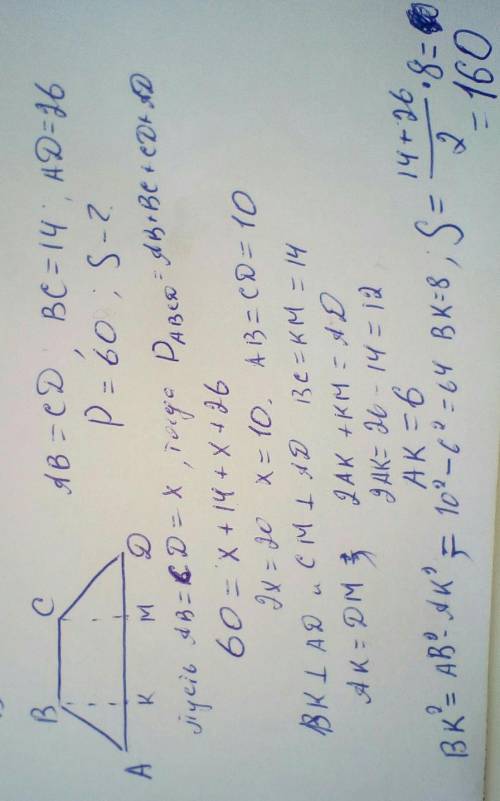 B C
A K M D
AB = CD BC = 14; AD = 26
P = 60; S - ?
Пусть AB = CD = x, тогда P ABCD = AB + BC + CD + AD
60 = x + 14 + x + 26
2x = 20 x = 10. AB = CD = 10
BK ⊥ AD и CM ⊥ AD BC = KM = 14
AK = DM 2AK + KM = AD
2AK = 26 - 14 = 12
AK = 6
BK² = AB² - AK² = 10² - 6² = 64 BK = 8; S = \frac{14 + 26}{2} · 8 =
= 160